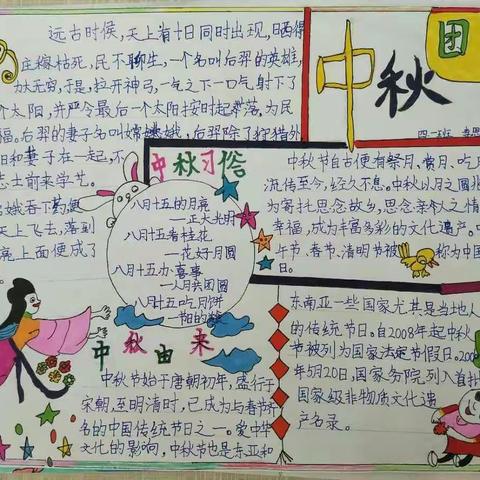 远古时候,天上有十日同时出现,晒得
庄稼枯死,民不聊生,一个名叫后羿的英雄,
力大无穷,于是,拉开神弓,一气之下一口气射下了
个太阳,并严令最后一个太阳按时起落,为民
福。后羿的妻子名叫嫦娥,后羿除了狩猎外
和妻子在一起,不
志士前来学艺。
娥吞下药便
天上飞去,落到
亮上面便成了
中秋
团
四一班
中秋习俗
八月十五的月亮
—正大光明
八月十五看桂花
—花好月圆
八月十五办喜事
—人月共团圆
八月十五吃月饼
中秋节自古便有祭月、赏月、吃月
流传至今,经久不息。中秋以月之圆
为寄托思念故乡,思念亲人之情
幸福,成为丰富多彩的文化遗产。
午节、春节、清明节被
称为中国
日。
中秋由来
中秋节始于唐朝初年,盛行于
宋朝,至明清时,已成为与春节齐
名的中国传统节日之一。受中华
文化的影响,中秋节也是东亚和
东南亚一些国家尤其是当地人
的传统节日。自2008年起中秋
节被列为国家法定节假日。200
年5月20日,国家务院列入首批
国家级非物质文化遗
产名录。